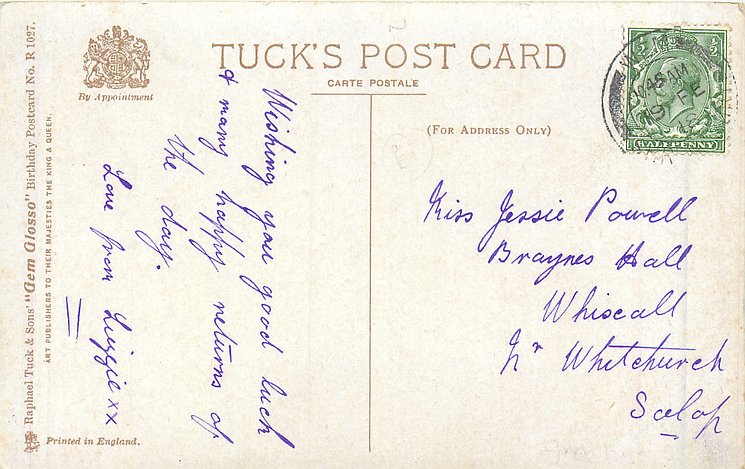 TUCK'S POST CARD
CARTE POSTALE
By Appointment
(FOR ADDRESS ONLY)
HALFPENNY
45 AM
19 FE
Raphael Tuck & Sons' "Gem Glosso" Birthday Postcard No. R 1027.
ART PUBLISHERS TO THEIR MAJESTIES THE KING & QUEEN.
Printed in England.
Wishing you good luck
& many happy returns of
the day.
Love from Lizzie xx
Miss Jessie Powell
Braynes Hall
Whixall
Nr Whitchurch
Salop